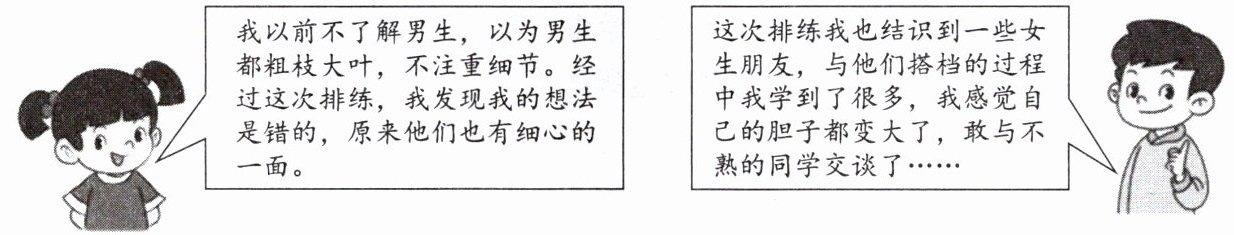 我以前不了解男生，以为男生
都粗枝大叶，不注重细节。经
过这次排练，我发现我的想法
是错的，原来他们也有细心的
一面。
这次排练我也结识到一些女
生朋友，与他们搭档的过程
中我学到了很多，我感觉自
己的胆子都变大了，敢与不
熟的同学交谈了……